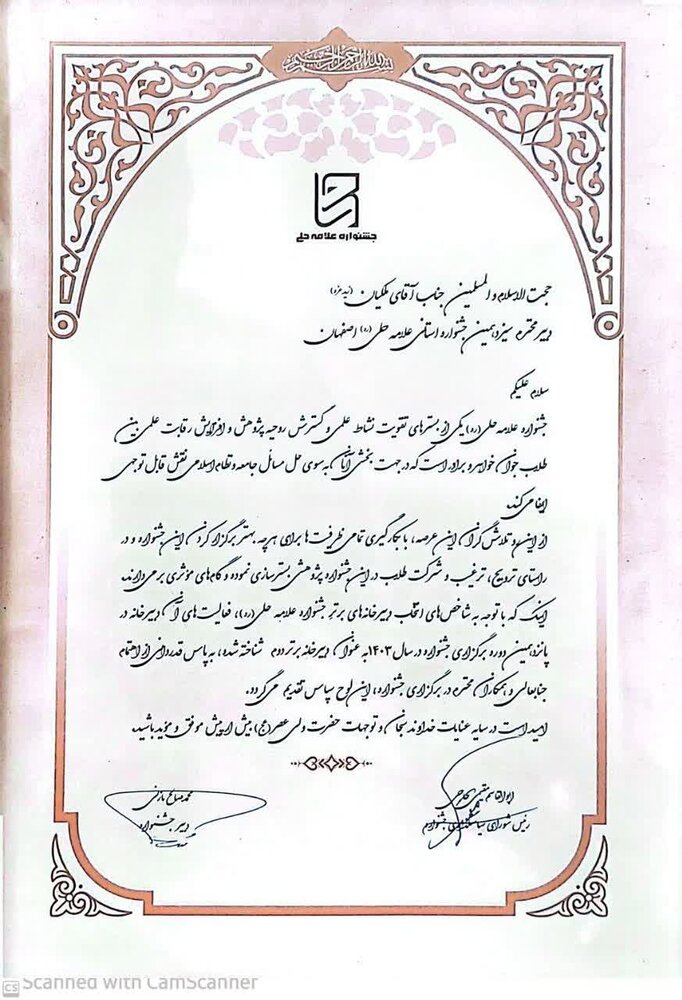 بسم الله الرحمن الرحیم
جشنواره علامه حلی
حجت الاسلام و المسلمین جناب آقای ملکیان (زید عزه)
دبیر محترم سیزدهمین جشنواره استانی علامه حلی (ره) اصفهان
سلام علیکم
جشنواره علامه حلی (ره) یکی از بسترهای تقویت نشاط علمی و گسترش روحیه پژوهش و افزایش رقابت علمی بین
طلاب جوان خواهر و برادر است که در جهت بخشی آنان به سوی حل مسائل جامعه و نظام اسلامی نقش قابل توجهی
ایفا می کند.
از این رو تلاش گران این عرصه، با بکارگیری تمامی ظرفیت ها برای هر چه بهتر برگزار کردن این جشنواره و در
راستای ترویج، ترغیب و شرکت طلاب در این جشنواره پژوهشی بسترسازی نموده و گام های مؤثری بر می دارند.
اینک که با توجه به شاخص های انتخاب دبیرخانه های برتر جشنواره علامه حلی (ره)، فعالیت های آن دبیرخانه در
پانزدهمین دوره برگزاری جشنواره در سال ۱۴۰۳ به عنوان دبیرخانه برتر دوم شناخته شده، به پاس قدردانی از اهتمام
جنابعالی و همکاران محترم در برگزاری جشنواره، این لوح سپاس تقدیم می گردد.
امید است در سایه عنایات خداوند سبحان و توجهات حضرت ولی عصر (عج) بیش از پیش موفق و مؤید باشید.
ابوالقاسم مقیمی حاجی
رئیس شورای سیاستگذاری جشنواره
محمد صالح مازنی
دبیر جشنواره
CS Scanned with CamScanner